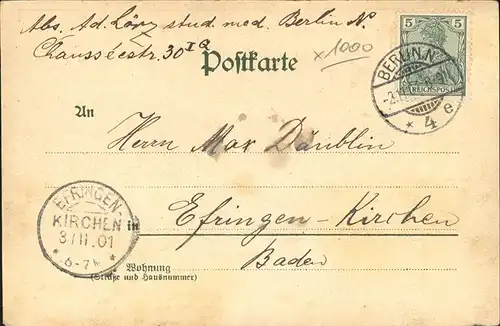 Abs. Ad. Lörz stud. med. Berlin N.
Chausséestr. 30 I Q
x1000
5 5
REICHSPOST
BERLIN.N.
* 4 e
Postkarte
An
Herrn Max Däublin
EFRINGEN-
KIRCHEN
3/II.01
* 6-7 N *
in Efringen-Kirchen
Baden
Wohnung
(Straße und Hausnummer)